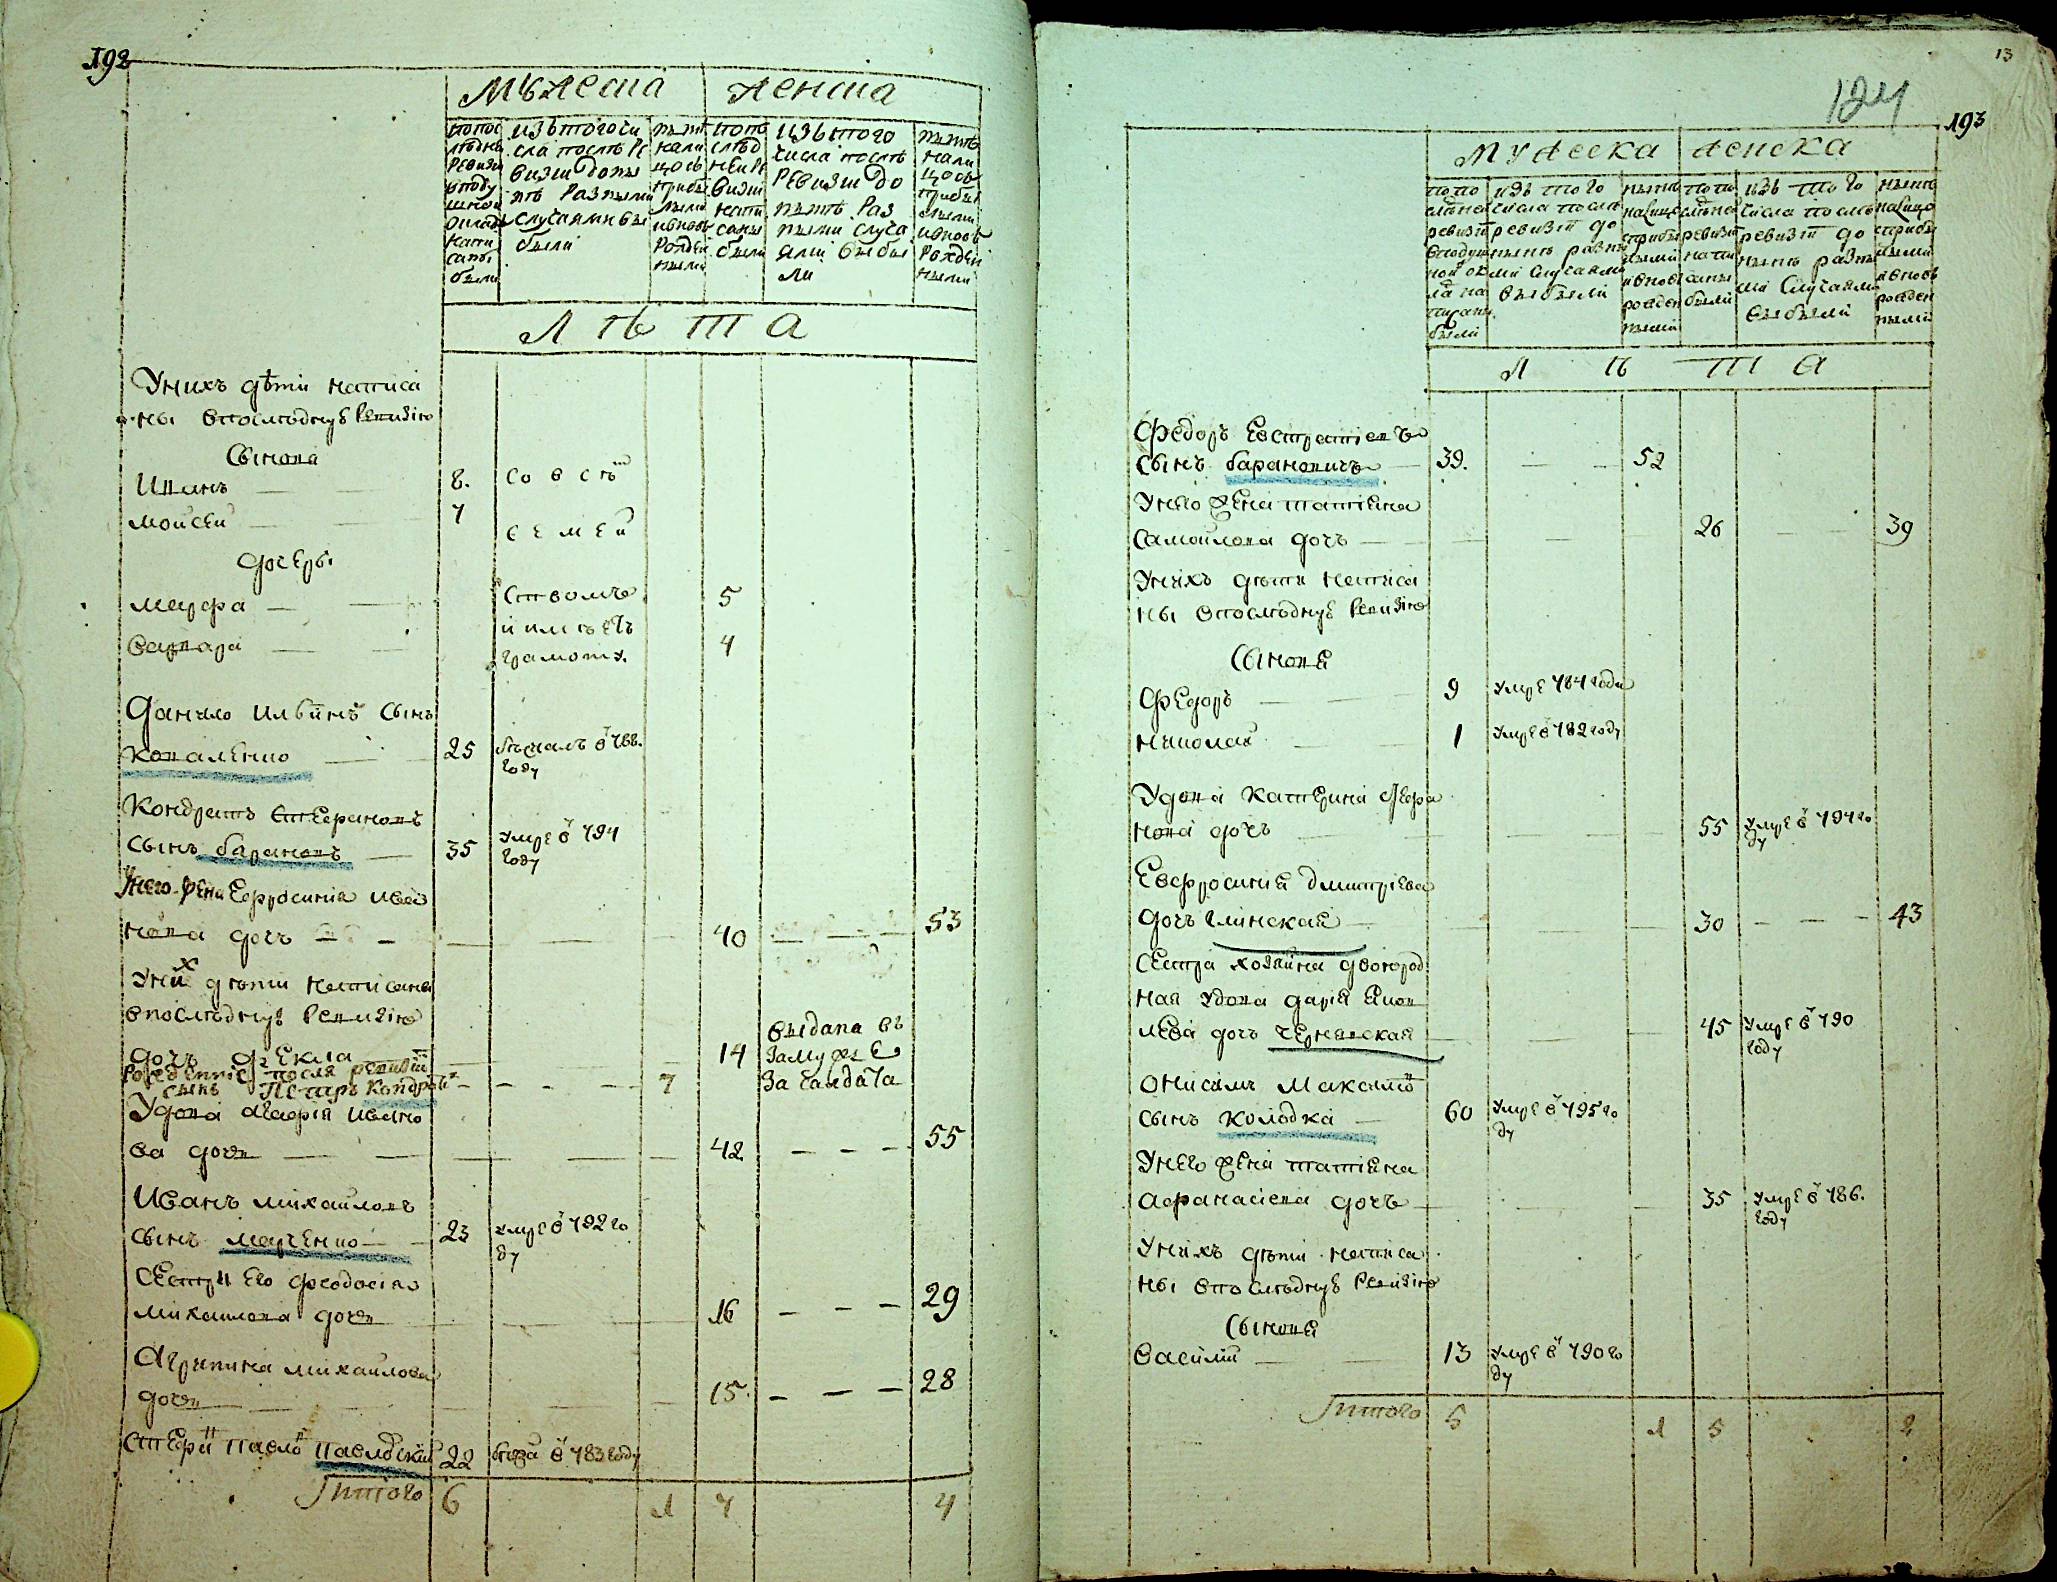 192
Мужеска женска
по пос
лѣдне
ревизи
в поду
шной
оклад
напи
саны
были
изъ того чи
сла послѣ ре
визии до ны
нѣ разными
случаями вы
были
нынѣ
нали
цо съ
прибы
лыми
и вновь
рожден
ными
по по
слѣд
ней ре
визии
напи
саны
были
изъ того
числа послѣ
ревизии до
нынѣ раз
ными случа
ями выбы
ли
нынѣ
нали
цо съ
прибы
лыми
и вновь
рожден
ными
Л ѣ т а
У нихъ дѣти написа
ны в последную ревизию
Сынова
Иванъ 8. со всѣ
Мойсей 7 семей
дочеры
Мауфра ством 5
Варвара 4
грамоту.
Данило Ильинъ сынъ
Коваленко 25 бѣжалъ в 788.
году
Кондратъ Стефановъ
сынъ Барановъ 35 умре в 794
году
У него жена Ефросиния Ива
нова дочъ 40 53
У них дѣти написаны
в последную ревизию
дочъ Фекла 14 выдана въ
замуже
за салдата
рожденніе после ревизіи
сынъ Петръ Кондрат 7
Удова Агафия Ивано
ва дочь 42 55
Иванъ Михайловъ
сынъ Марченко 23 умре в 792 го
ду
Сестри его Феодосия
Михаилова дочь 16 29
Агрипина Михаилова
дочь 15. 28
Стефан Павло Павловский 22 в 783 году
Итого 6 1 7 4
13
124
193
Мужеска женска
по по
следней
ревизіи
в подуш
ной ок
лад на
писаны
были
изъ того
числа после
ревизіи до
нынѣ разны
ми случаями
выбыли
нынѣ
налицо
с прибы
лыми
и вновь
рожден
ными
по по
следней
ревизіи
напи
саны
были
изъ того
числа после
ревизіи до
нынѣ разны
ми случаями
выбыли
нынѣ
налицо
с прибы
лыми
и вновь
рожден
ными
Л ѣ т а
Федоръ Евстратіевъ
сынъ Барановичъ 39. 52
У него жена Татіяна
Самойлова дочъ 26 39
У нихъ дѣти написа
ны в последную ревизию
Сыновя
Федоръ 9 умре 784 году
Николай 1 умре в 782 году
Удова Катерина Федра
нова дочъ 55 умре в 794 го
ду
Евфросиния Дмитріева
дочъ Глинская 30 43
Сестра хозяйна двоюрод
ная удова Дария Яков
лева дочъ Чернявская 45 умре в 790
году
Онисимъ Максимов
сынъ Колодка 60 умре в 795 го
ду
У него жена Татіяна
Афанасіева дочъ 35 умре в 786.
году
У нихъ дѣти написа
ны в последную ревизию
Сыновя
Василий 13 умре в 790 го
ду
Итого 5 1 5 2